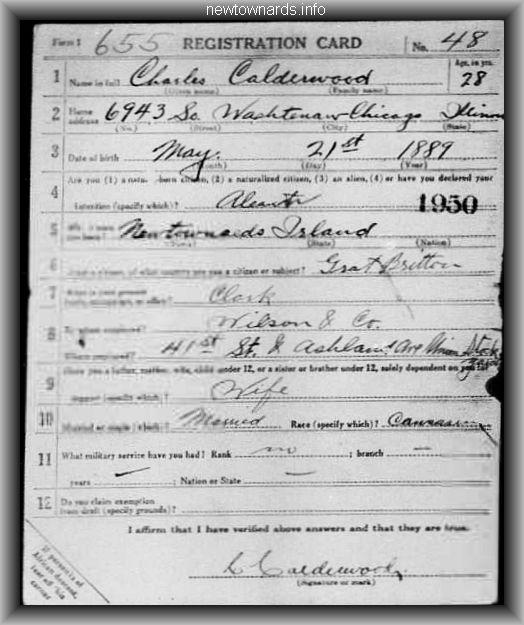 newtownards.info
Form 1 655 REGISTRATION CARD No. 48
1 Name in full Charles Calderwood Age, in yrs. 28
(Given name) (Family name)
2 Home address 6943 So. Washtenaw Chicago Illinois
(No.) (Street) (City) (State)
3 Date of birth May. 21st 1889
(Month) (Day) (Year)
Are you (1) a natural-born citizen, (2) a naturalized citizen, (3) an alien, (4) or have you declared your
4 intention (specify which)? 1950
5 Newtownards Irland
(Town) (State) (Nation)
6 If not a citizen, of what country are you a citizen or subject? Grat Britton
7 Clark
8 By whom employed? Wilson & Co.
Where employed? 41st St. & Ashland Ave Union Stock Yards
Have you a father, mother, wife, child under 12, or a sister or brother under 12, solely dependent on you for
9 support (specify which)? Wife
10 Married or single (which)? Married Race (specify which)?
11 What military service have you had? Rank no ; branch —
years — ; Nation or State —
12 Do you claim exemption
from draft (specify grounds)?
I affirm that I have verified above answers and that they are true.
C Calderwood
(Signature or mark)
If person is of
African descent,
tear off this
corner